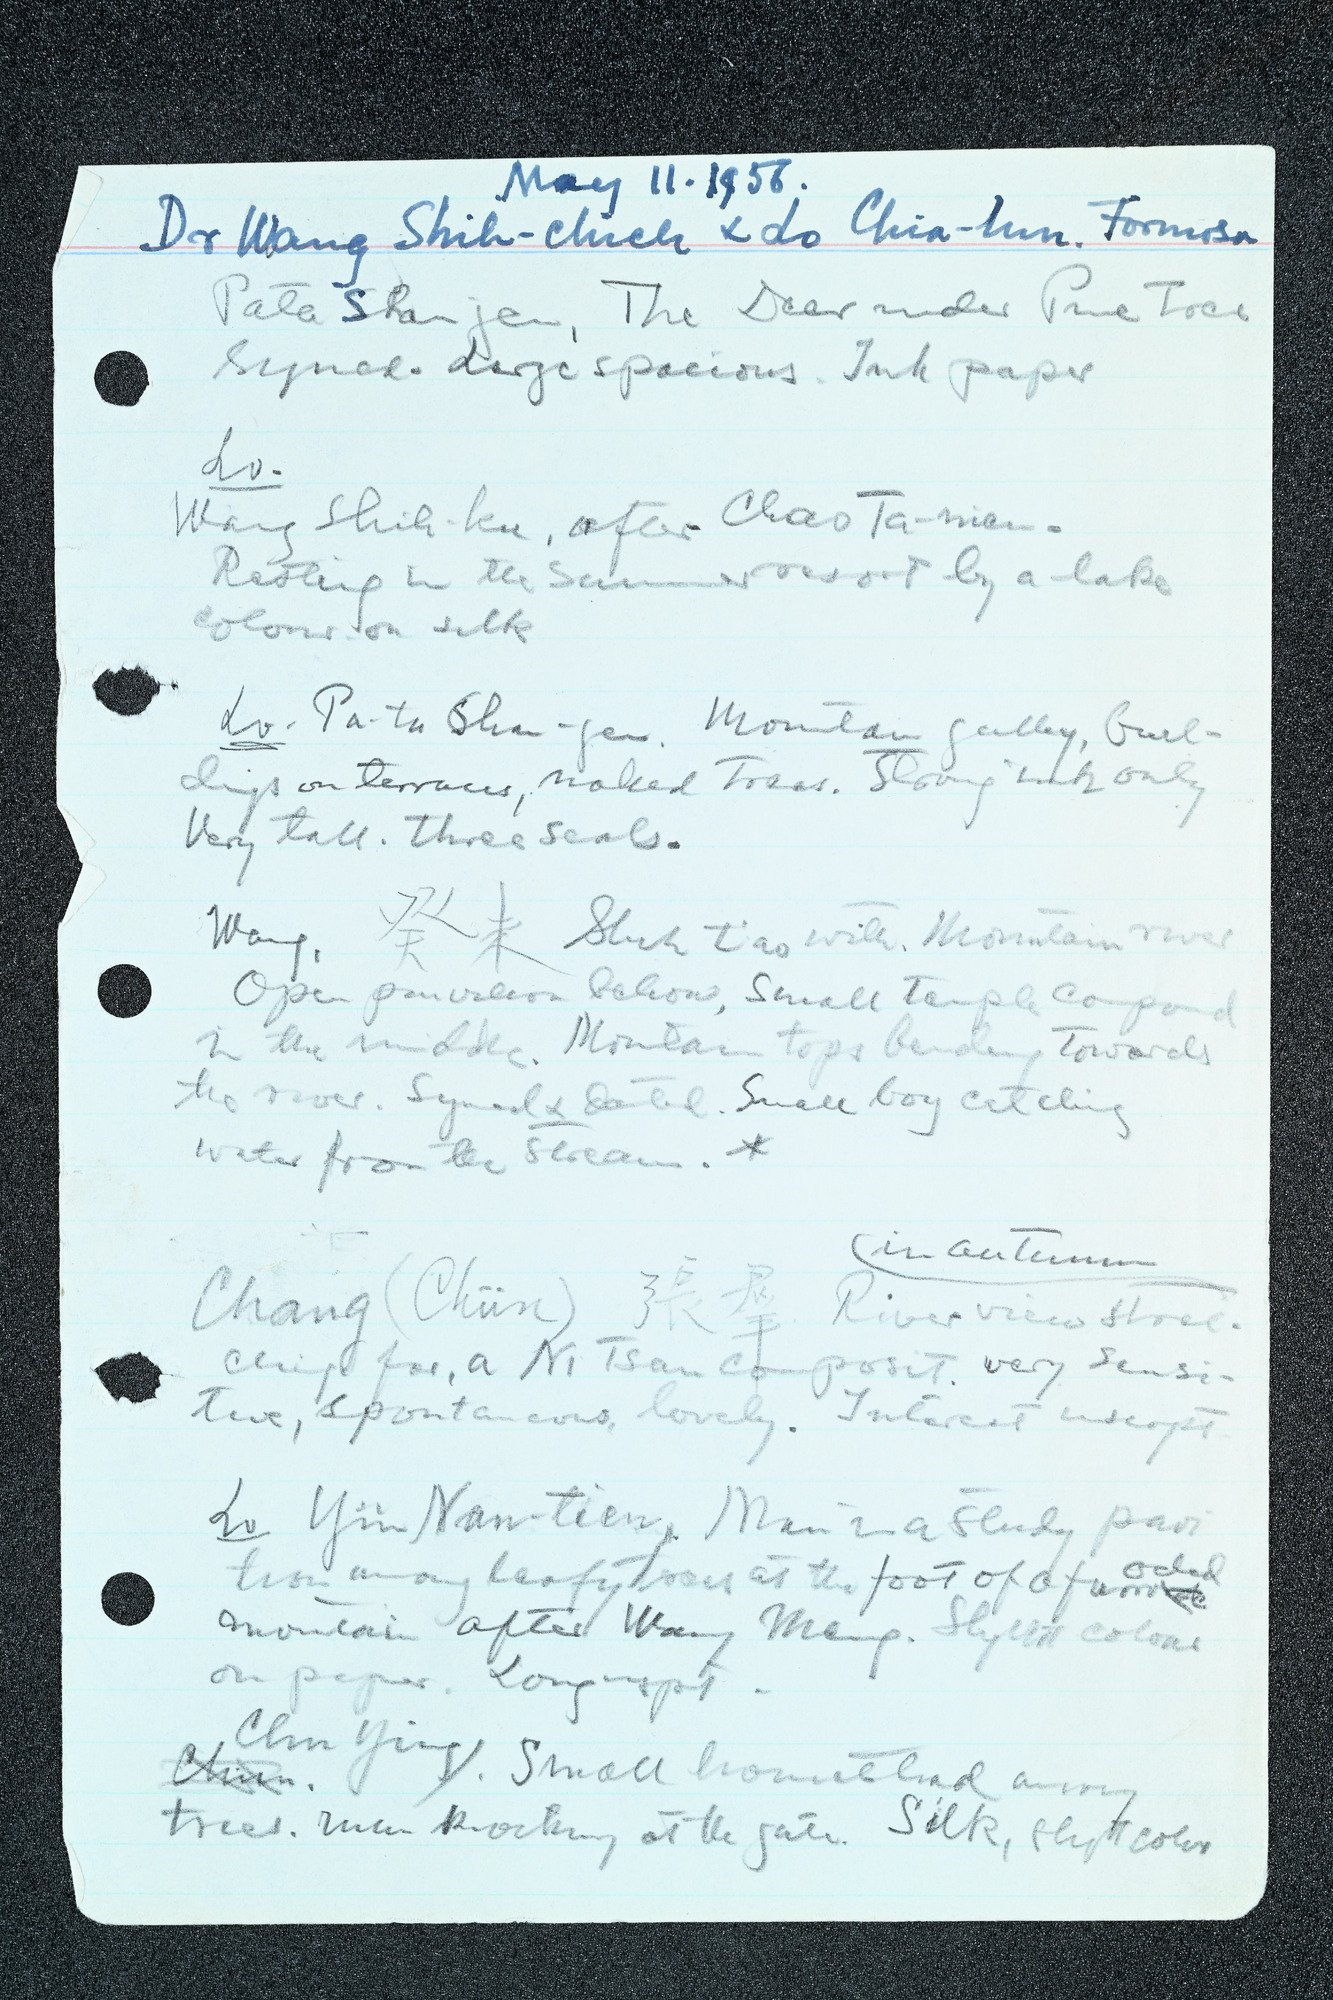 May 11. 1956.
Dr Wang Shih-chieh & Lo Chia-lun. Formosa
Pata Shan jen, The Deer under Pine Tree
Signed. Large spacious. Ink paper
Lo.
Wang Shih-ku, after Chao Ta-nien.
Resting in the summer resort by a lake
colour on silk
Lo. Pa-ta Shan-jen. Mountain gulley, buil-
dings on terraces, naked trees. Strong ink only
Very tall. Three seals.
Wang, 癸未 Shih t'ao with. Mountain river
Open pavilion below, small temple compound
in the middle. Mountain tops bending towards
the river. Signed & dated. Small boy catching
water from the stream. *
(in autumn
Chang (Chün) 張羣 River view stret-
ching far, a Ni Tsan composit. very sensi-
tive, spontaneous, lovely. Interest inscript
Lo Yün Nan-tien, Man in a study pavi
lion among leafy trees at the foot of a
mountain after Wang Meng. Slight colour
on paper. Long inspt.
Chu Ying). Small homestead among
trees. man knocking at the gate. Silk, slight color